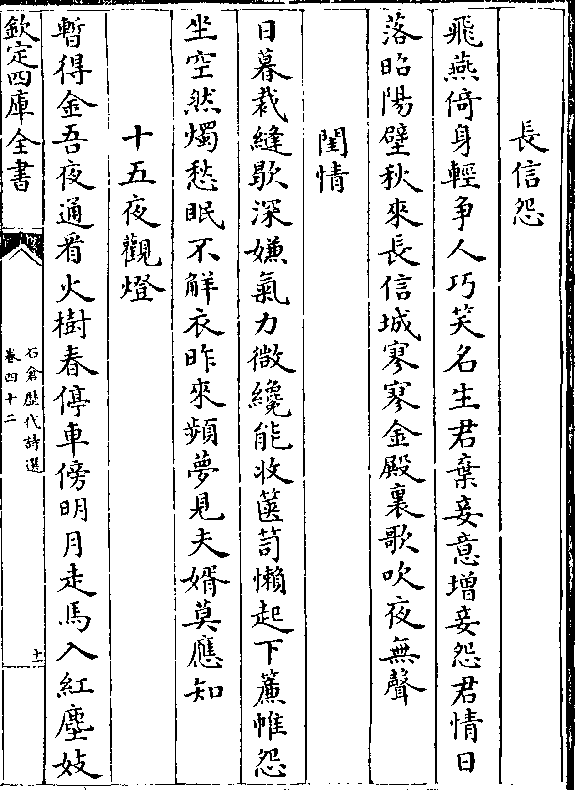 長信怨
飛燕倚身輕争人巧笑名生君棄妾意增妾怨君情日
落昭陽壁秋來長信城寥寥金殿裏歌吹夜無聲
閨情
日暮裁縫歇深嫌氣力微纔能收篋笥懶起下簾帷怨
坐空然燭愁眠不解衣昨來頻夢見夫婿莫應知
十五夜觀燈
暫得金吾夜通看火樹春停車傍明月走馬入紅塵妓
欽定四庫全書
石倉歷代詩選
卷四十二
十